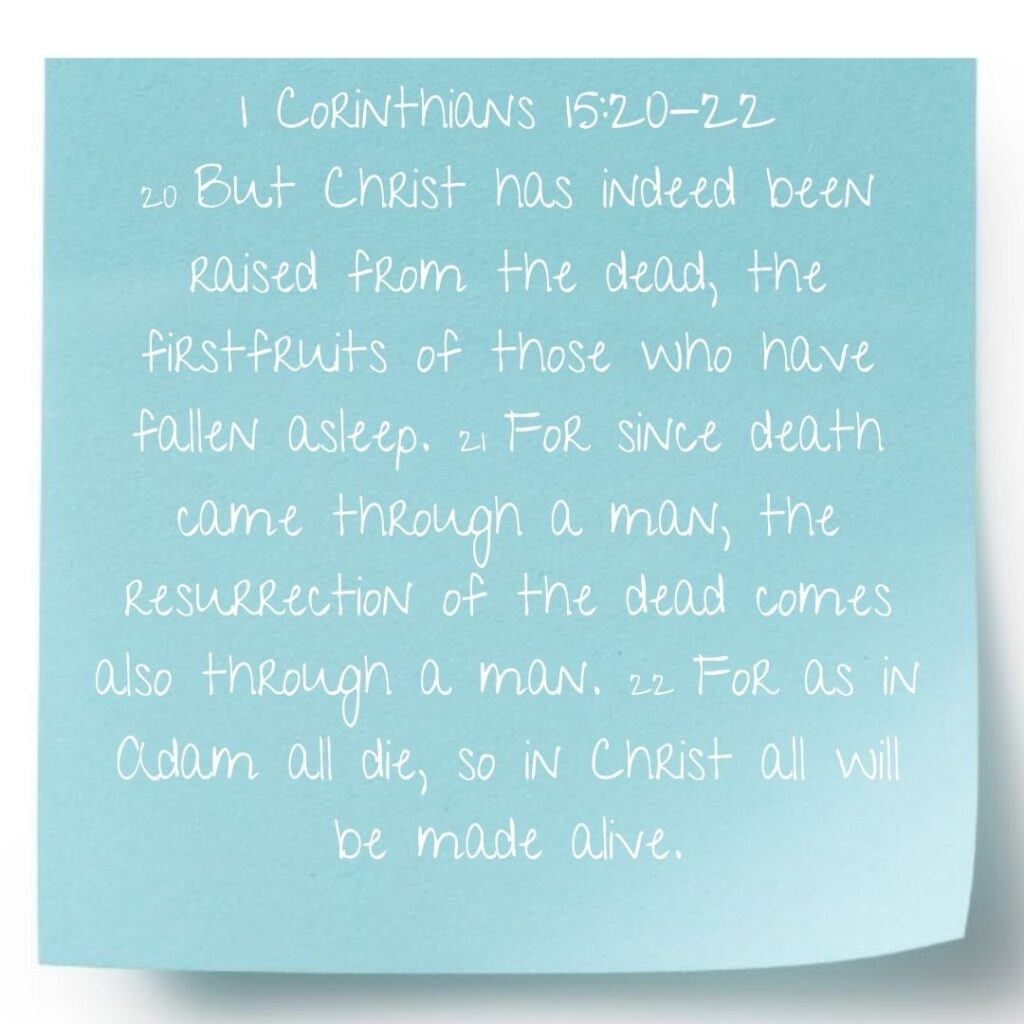 1 Corinthians 15:20-22
20 But Christ has indeed been
raised from the dead, the
firstfruits of those who have
fallen asleep. 21 For since death
came through a man, the
resurrection of the dead comes
also through a man. 22 For as in
Adam all die, so in Christ all will
be made alive.